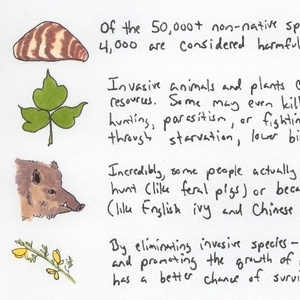 Of the 50,000+ non-native sp
4,000 are considered harmful
Invasive animals and plants c
resources. Some may even kill
hunting, parasitism, or fightin
through starvation, lower bi
Incredibly, some people actually
hunt (like feral pigs) or beca
(like English ivy and Chinese
By eliminating invasive species-
and promoting the growth of
has a better chance of survi